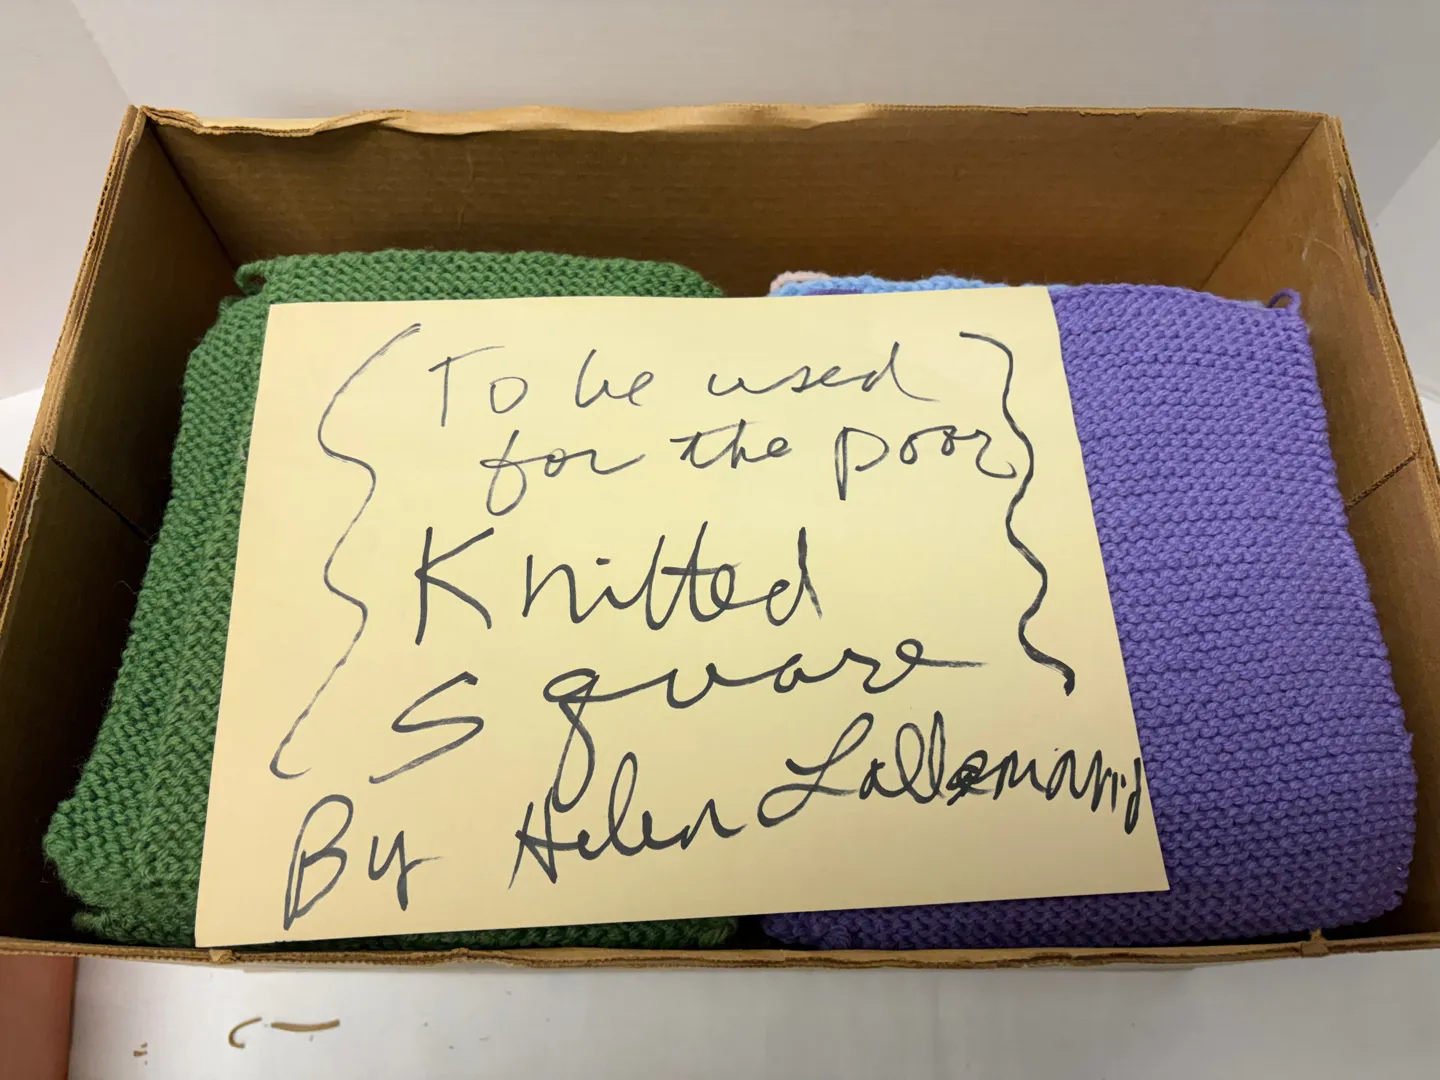 To be used
for the poor
Knitted
Square
By Helen